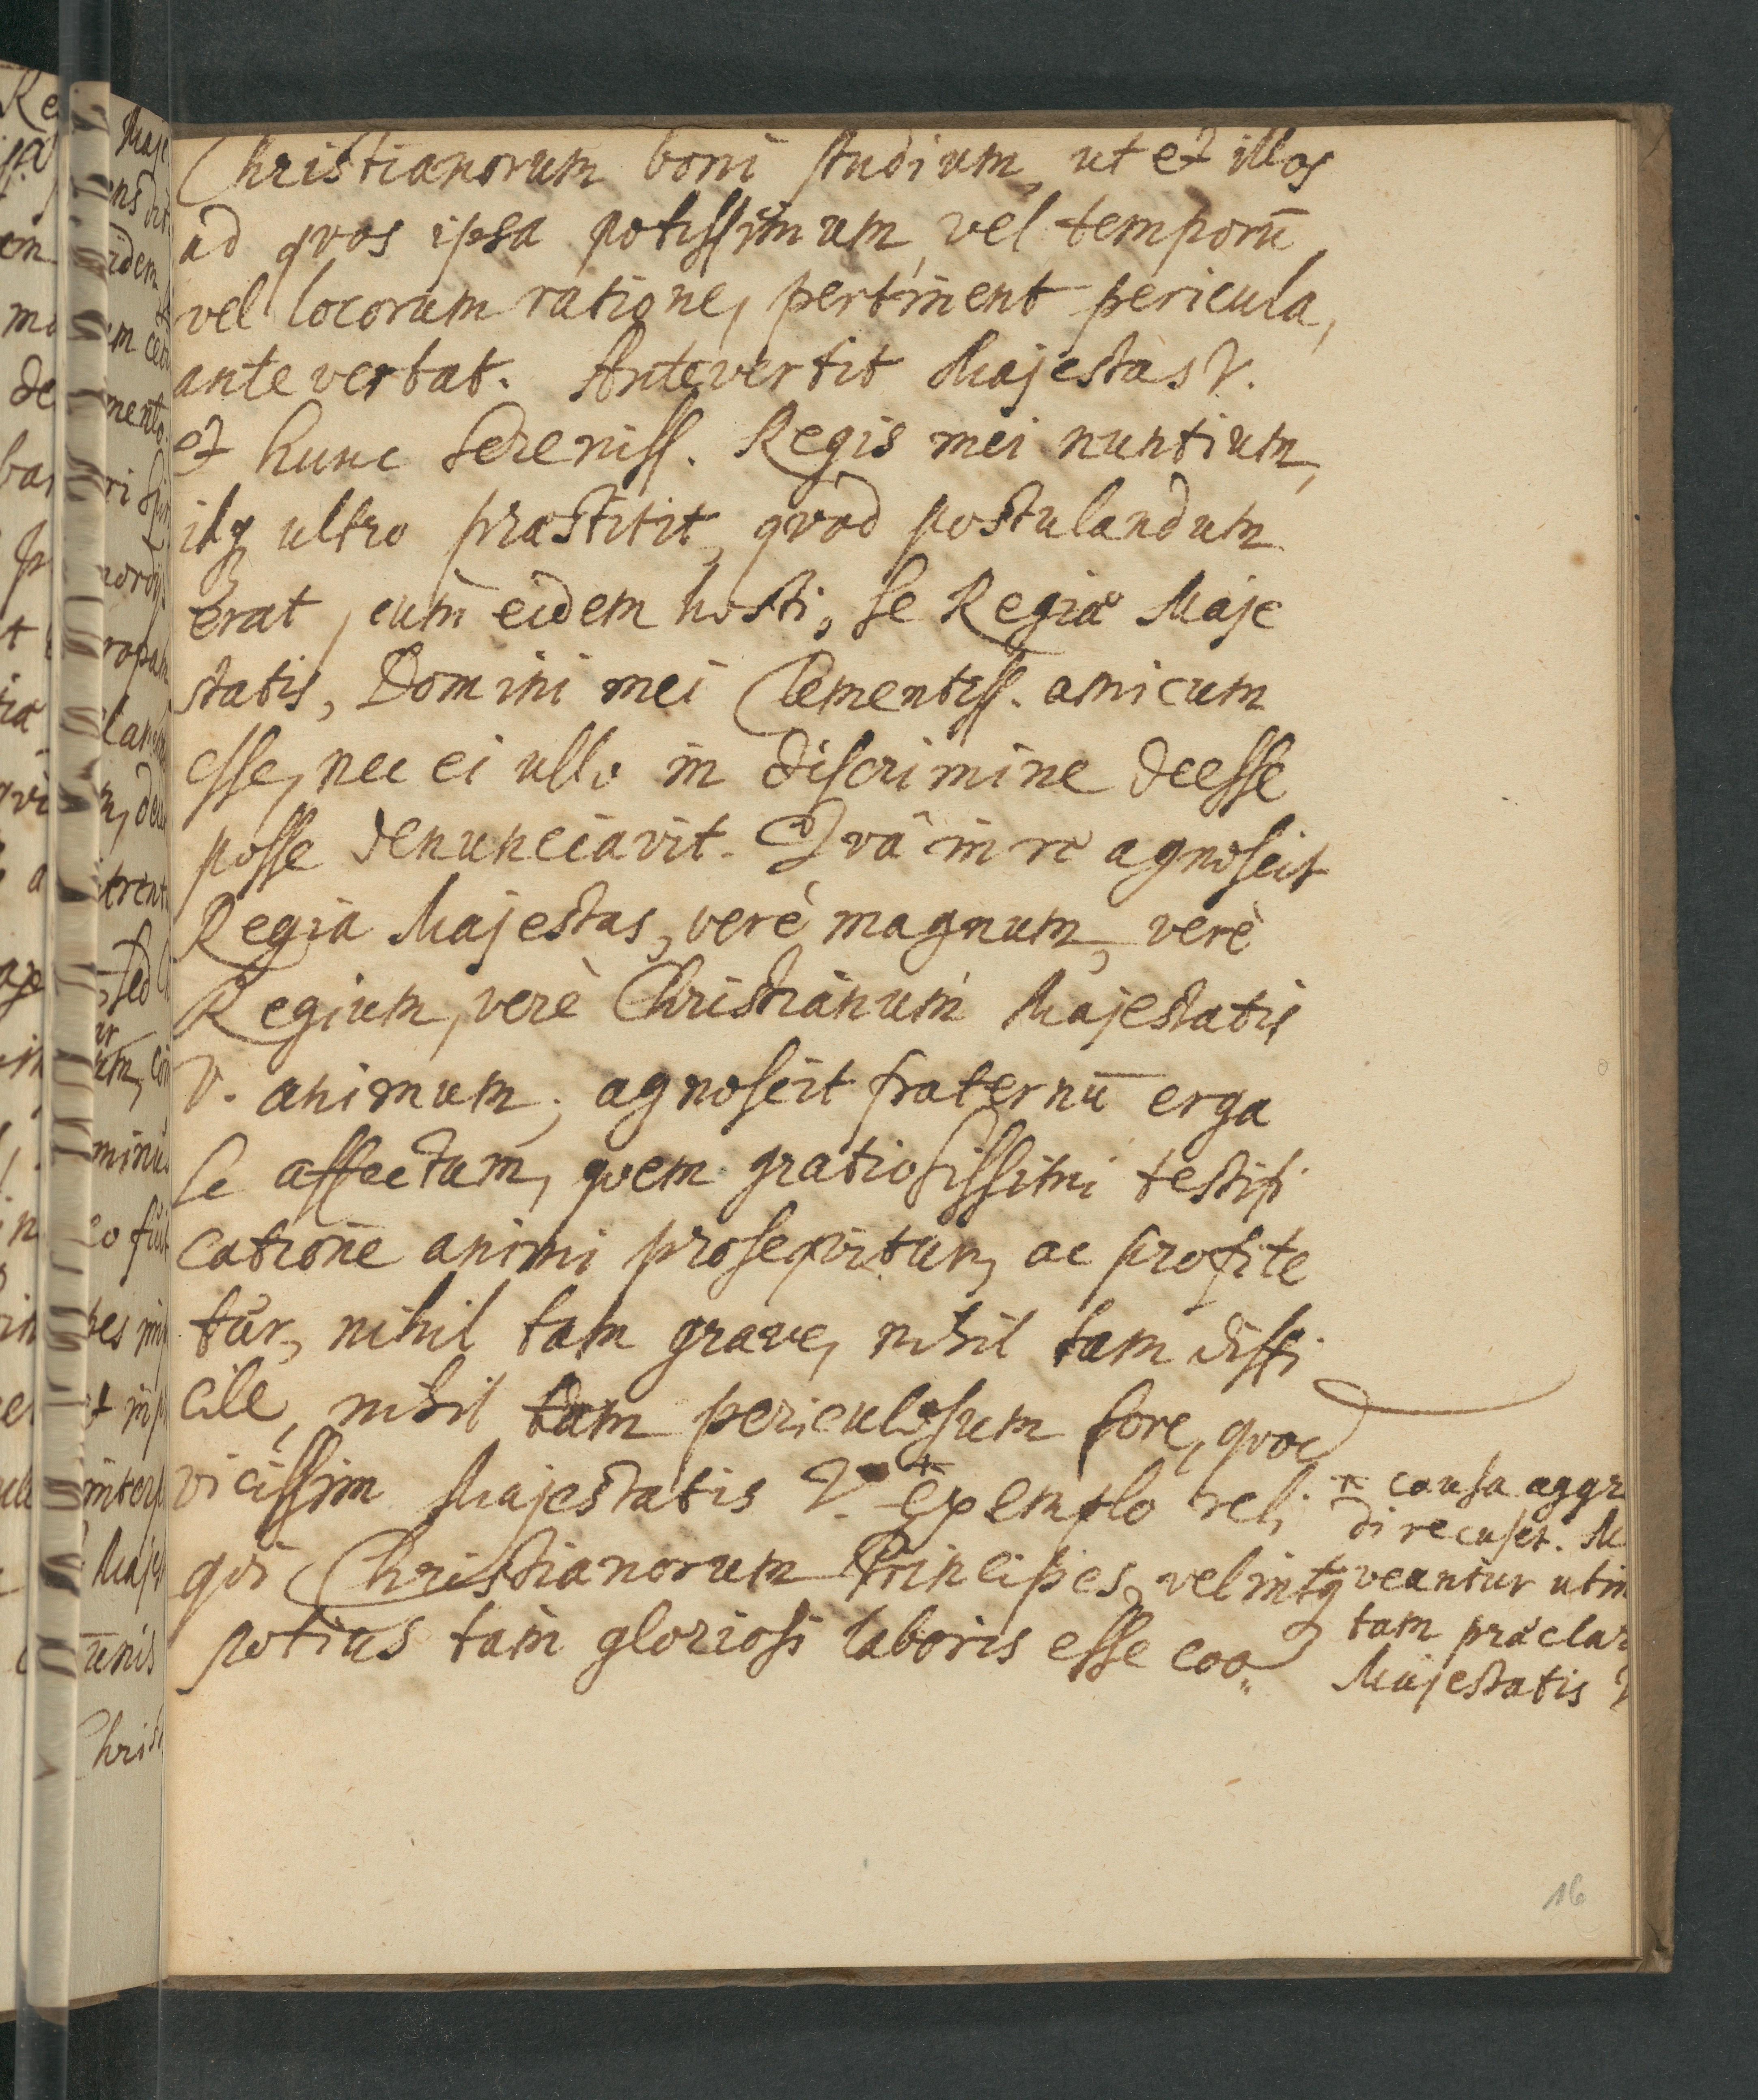 Christianorum boni studium, ut et illos
ad qvos ipsa potissimum, vel temporū
vel locorum ratione, pertinent pericula,
antevertat. Antevertit Majestas V.
et hunc Sereniss. Regis mei nuntium,
idq ultro præstitit, qvod postulandum
erat, cum eidem hosti, se Regiæ Maje
statis, Domini mei Clementiss. amicum
esse, nec ei ullo in discrimine deesse
posse denunciavit. Qvâ in re agnoscit
Regia Majestas, verè magnum, verè
Regium, verè Christianum Majestatis
V. animum; agnoscit fraternū erga
se affectum, qvem gratiosissimi testifi
catione animi proseqvitur, ac profite
tur, nihil tam grave, nihil tam diffi
cile, nihil tam periculosum fore, qvod
vicissim Majestatis V. + exemplo reli
qvi Christianorum Principes, velintq
potius tam gloriosi laboris esse coo
+ causa aggr
di recuset. M
veantur utin
tam præclar
Majestatis V
16